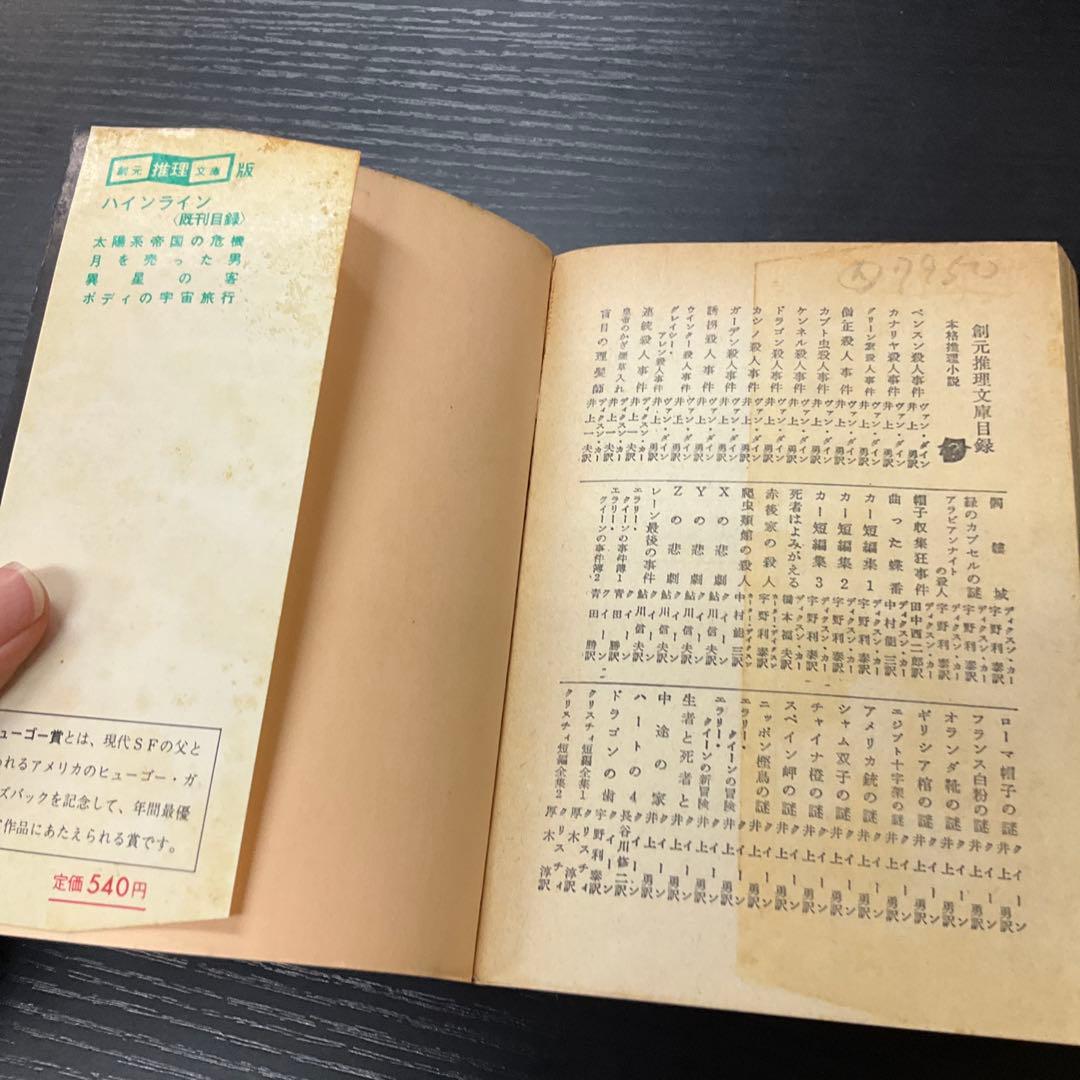 創元推理文庫版
ハインライン
〈既刊目録〉
太陽系帝国の危機
月を売った男
異星の客
ポディの宇宙旅行
ューゴー賞とは、現代SFの父と
われるアメリカのヒューゴー・ガ
ズバックを記念して、年間最優
作品にあたえられる賞です。
定価540円
7950
創元推理文庫目録
本格推理小説
ベンスン殺人事件 ヴァン・ダイン 井上勇訳
カナリヤ殺人事件 ヴァン・ダイン 井上勇訳
グリーン家殺人事件 ヴァン・ダイン 井上勇訳
僧正殺人事件 ヴァン・ダイン 井上勇訳
カブト虫殺人事件 ヴァン・ダイン 井上勇訳
ケンネル殺人事件 ヴァン・ダイン 井上勇訳
ドラゴン殺人事件 ヴァン・ダイン 井上勇訳
カシノ殺人事件 ヴァン・ダイン 井上勇訳
ガーデン殺人事件 ヴァン・ダイン 井上勇訳
誘拐殺人事件 ヴァン・ダイン 井上勇訳
ウインター殺人事件 ヴァン・ダイン 井上勇訳
グレイシー・アレン殺人事件 ヴァン・ダイン 井上勇訳
連続殺人事件 ディクスン・カー 井上一夫訳
皇帝のかぎ煙草入れ ディクスン・カー 井上一夫訳
盲目の理髪師 ディクスン・カー 井上一夫訳
髑髏城 ディクスン・カー 宇野利泰訳
緑のカプセルの謎 ディクスン・カー 宇野利泰訳
アラビアンナイトの殺人 ディクスン・カー 宇野利泰訳
帽子収集狂事件 ディクスン・カー 田中西二郎訳
曲った蝶番 ディクスン・カー 中村能三訳
カー短編集1 ディクスン・カー 宇野利泰訳
カー短編集2 ディクスン・カー 宇野利泰訳
カー短編集3 ディクスン・カー 宇野利泰訳
死者はよみがえる ディクスン・カー 橋本福夫訳
赤後家の殺人 カーター・ディクスン 宇野利泰訳
爬虫類館の殺人 カーター・ディクスン 中村能三訳
Xの悲劇 クイーン 鮎川信夫訳
Yの悲劇 クイーン 鮎川信夫訳
Zの悲劇 クイーン 鮎川信夫訳
レーン最後の事件 クイーン 鮎川信夫訳
エラリー・クイーンの事件簿1 クイーン 青田勝訳
エラリー・クイーンの事件簿2 クイーン 青田勝訳
ローマ帽子の謎 クイーン 井上勇訳
フランス白粉の謎 クイーン 井上勇訳
オランダ靴の謎 クイーン 井上勇訳
ギリシア棺の謎 クイーン 井上勇訳
エジプト十字架の謎 クイーン 井上勇訳
アメリカ銃の謎 クイーン 井上勇訳
シャム双子の謎 クイーン 井上勇訳
チャイナ橙の謎 クイーン 井上勇訳
スペイン岬の謎 クイーン 井上勇訳
ニッポン樫鳥の謎 クイーン 井上勇訳
エラリー・クイーンの冒険 クイーン 井上勇訳
エラリー・クイーンの新冒険 クイーン 井上勇訳
生者と死者と クイーン 井上勇訳
中途の家 クイーン 井上勇訳
ハートの4 クイーン 長谷川修二訳
ドラゴンの歯 クイーン 宇野利泰訳
クリスチィ短編全集1 クリスチィ 厚木淳訳
クリスチィ短編全集2 クリスチィ 厚木淳訳